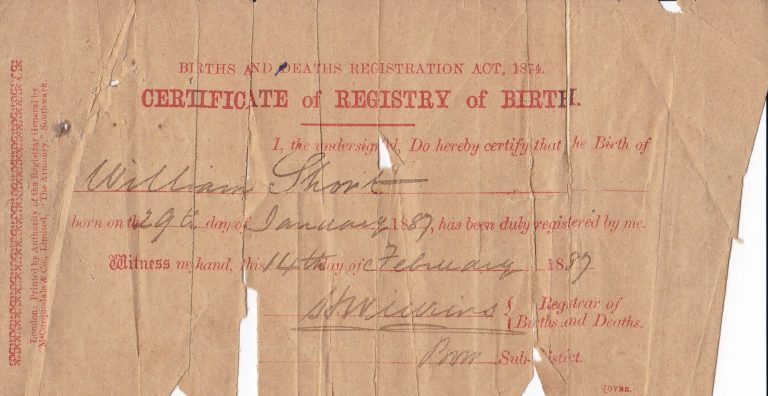 BIRTHS AND DEATHS REGISTRATION ACT, 1874.
CERTIFICATE of REGISTRY of BIRTH.
I, the undersigned, Do hereby certify that the Birth of
William Short
born on the 29th day of January 1887, has been duly registered by me.
Witness my hand, this 14th day of February 1887
Registrar of
Births and Deaths.
Bow Sub-District.
[OVER.
London: Printed by Authority of the Registrar General by
McCorquodale & Co., Limited, "The Armoury," Southwark.